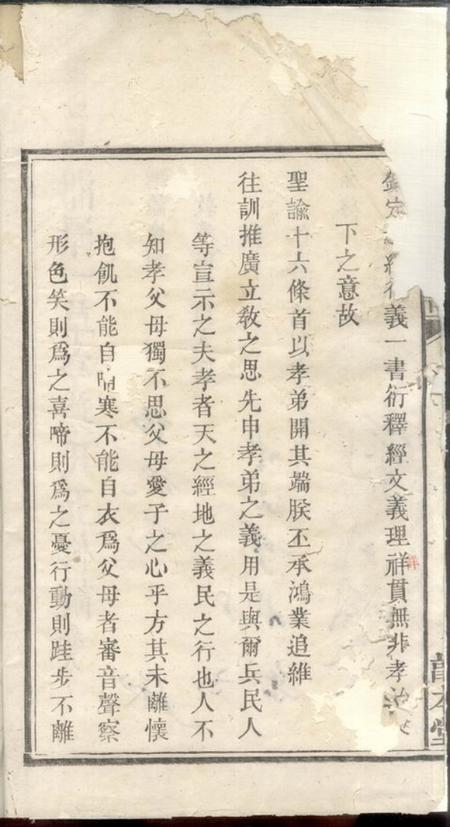 義一書衍釋經文義理祥貫無非孝治
下之意故
聖諭十六條首以孝弟開其端朕丕承鴻業追維
往訓推廣立敎之思先申孝弟之義用是與爾兵民人
等宣示之夫孝者天之經地之義民之行也人不
知孝父母獨不思父母愛子之心乎方其未離懷
抱飢不能自哺寒不能自衣爲父母者審音聲察
形色笑則爲之喜啼則爲之憂行動則跬步不離